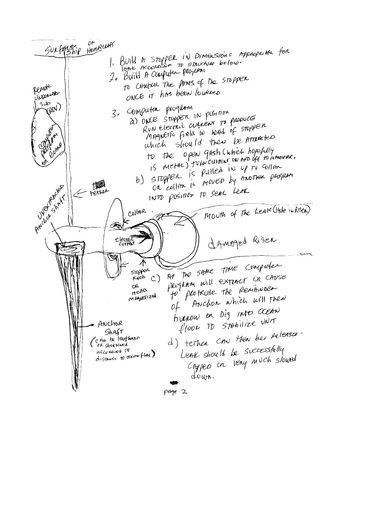 SURFACE OR
SHIP OR
1. BUILD A STOPPER IN DIMENSIONS APPROPRIATE FOR
LEAK ACCORDING TO STRUCTURE BELOW.
2. BUILD A COMPUTER PROGRAM
TO CONTROL THE ARMS OF THE STOPPER
ONCE IT HAS BEEN LOWERED
3. COMPUTER PROGRAM
a) ONCE STOPPER IN POSITION
RUN ELECTRIC CURRENT TO PRODUCE
MAGNETIC FIELD TO HEAD OF STOPPER
WHICH SHOULD THEN BE ATTRACTED
TO THE OPEN GASH (WHICH HOPEFULLY
IS METAL) TURN ON AND OFF TO
b) STOPPER IS PULLED IN UP TO COLLAR
OR COLLAR IS MOVED BY ANOTHER PROGRAM
INTO POSITION TO SEAL LEAK
Remote
Sub
(ROV)
Computer
Program
on Board
tether
Collar
ANCHOR SHAFT
Electric
Current
MOUTH OF THE LEAK (Hole in Riser)
damaged Riser
STOPPER
HEAD
OR
magnetized
c) AT THE SAME TIME COMPUTER
PROGRAM WILL EXTRACT OR CAUSE
TO PROTRUDE THE REMAINDER
OF ANCHOR WHICH WILL THEN
BURROW OR DIG INTO OCEAN
FLOOR TO STABILIZE UNIT
ANCHOR
SHAFT
(CAN BE LENGTHENED
OR SHORTENED
ACCORDING TO
DISTANCE TO OCEAN FLOOR)
d) TETHER CAN THEN BE RELEASED.
LEAK SHOULD BE SUCCESSFULLY
CAPPED OR VERY MUCH SLOWED
DOWN.
page 2